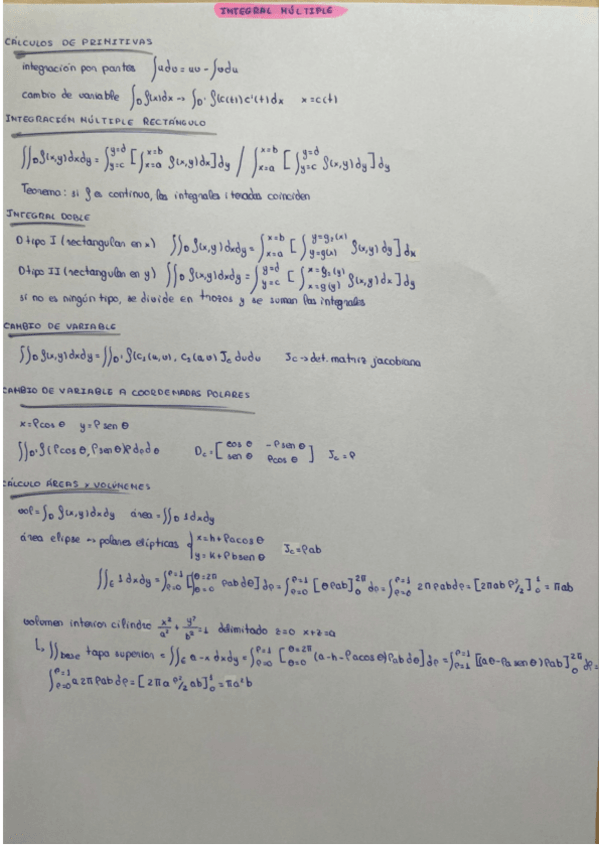 INTEGRAL MÚLTIPLE
CÁLCULOS DE PRIMITIVAS
integración por partes ∫udv = uv - ∫vdu
cambio de variable ∫_D f(x)dx → ∫_D' f(c(t))c'(t)dx x=c(t)
INTEGRACIÓN MÚLTIPLE RECTÁNGULO
∬_D f(x,y)dxdy = ∫_{y=c}^{y=d} [∫_{x=a}^{x=b} f(x,y)dx]dy / ∫_{x=a}^{x=b} [∫_{y=c}^{y=d} f(x,y)dy]dy
Teorema: si f es continua, las integrales iteradas coinciden
INTEGRAL DOBLE
D tipo I (rectangular en x) ∬_D f(x,y)dxdy = ∫_{x=a}^{x=b} [∫_{y=g(x)}^{y=g₂(x)} f(x,y)dy]dx
D tipo II (rectangular en y) ∬_D f(x,y)dxdy = ∫_{y=c}^{y=d} [∫_{x=g(y)}^{x=g₂(y)} f(x,y)dx]dy
si no es ningún tipo, se divide en trozos y se suman las integrales
CAMBIO DE VARIABLE
∬_D f(x,y)dxdy = ∬_D' f(c₁(u,v), c₂(u,v) Jc dudv Jc → det. matriz jacobiana
CAMBIO DE VARIABLE A COORDENADAS POLARES
x=ρcos θ y=ρ sen θ
∬_D' f(ρcos θ, ρsen θ)ρ dρ dθ Dc = [cos θ -ρ sen θ / sen θ ρcos θ] Jc=ρ
CÁLCULO ÁREAS Y VOLÚMENES
vol = ∫_D f(x,y)dxdy área = ∬_D 1dxdy
área elipse → polares elípticas { x=h+ρacos θ / y=k+ρbsen θ Jc=ρab
∬_E 1dxdy = ∫_{ρ=0}^{ρ=1} [∫_{θ=0}^{θ=2π} ρab dθ]dρ = ∫_{ρ=0}^{ρ=1} [θρab]_0^{2π} dρ = ∫_{ρ=0}^{ρ=1} 2πρabdρ = [2πab ρ²/2]_0^1 = πab
volumen interior cilindro x²/a² + y²/b² = 1 delimitado z=0 x+z=a
↳ ∬ base tapa superior = ∬_E a-x dxdy = ∫_{ρ=0}^{ρ=1} [∫_{θ=0}^{θ=2π} (a-h-ρacos θ)ρab dθ]dρ = ∫_{ρ=1}^{ρ=1} [(aθ-ρa sen θ)ρab]_0^{2π} dρ =
∫_{ρ=0}^{ρ=1} a2πρab dρ = [2πa ρ²/2 ab]_0^1 = πa²b